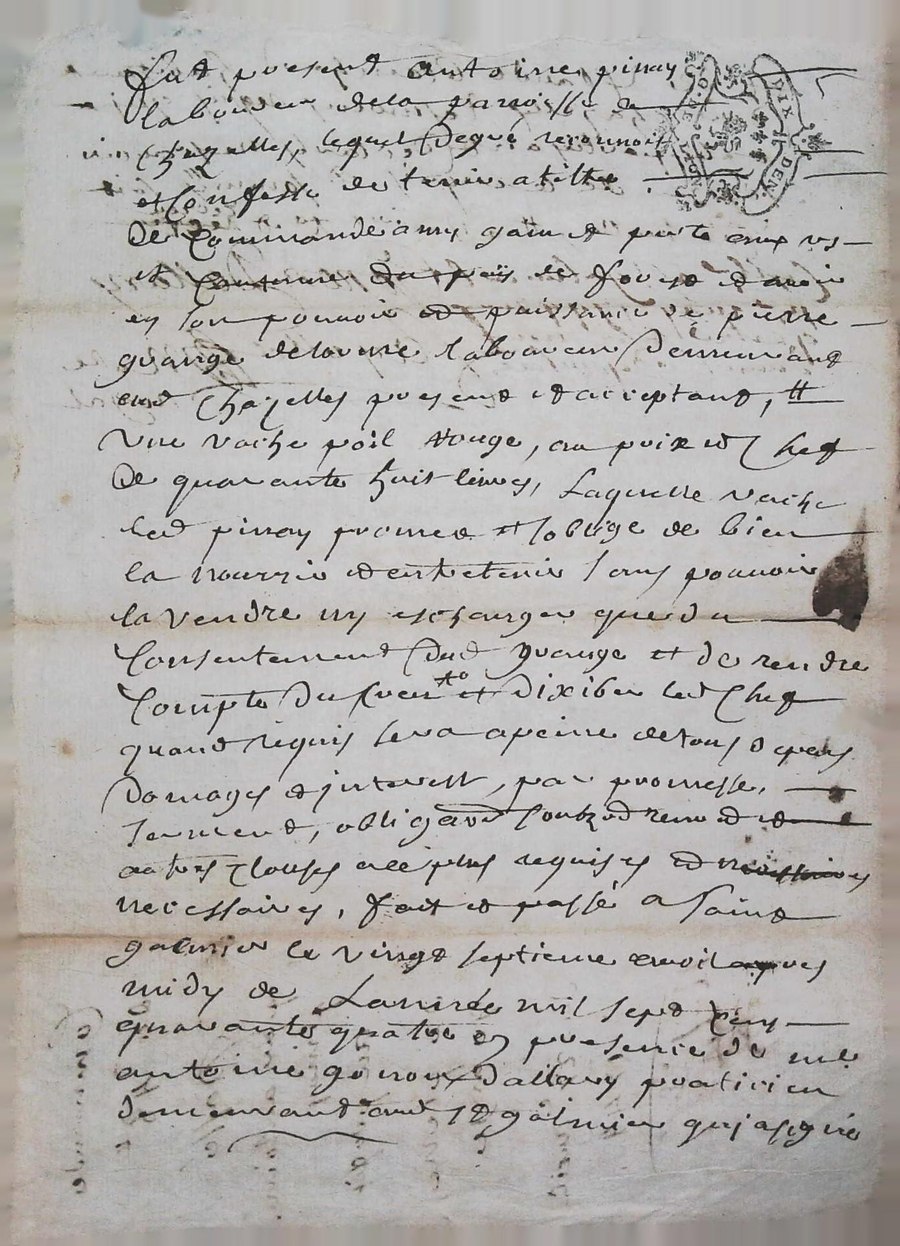 fut present antoine pinay
laboureur dela parroisse de
Chazelles, lequel de gré reconnoit
et Confesse de tenir a tiltre
de Commande a my gain et perte aux us
et Coutume du païs de forest et avoir
en son pouvoir et puissance de pierre
grange laboureur demeurant
aud Chazelles present et acceptant,
une vache poil rouge, au prix et Chef
de quarante huit livres, Laquelle vache
led pinay promet et soblige de bien
la nourrir et entretenir sans pouvoir
la vendre ny eschanger que du
Consentement dud grange et de rendre
Compte du et exiber led Chef
quand requis sera a peine de tous depens
domages et interest, par promesse,
serment, obligaon et
autres clauses a ce plus requises et
necessaires, fait et passé a saint
galmier le vingt septieme avril apres
midy de Lannée mil sept Cens
quarante quatre en presence de me
antoine dallary praticien
demeurant aud St galmier qui a signé
DIX DEN.
LYON